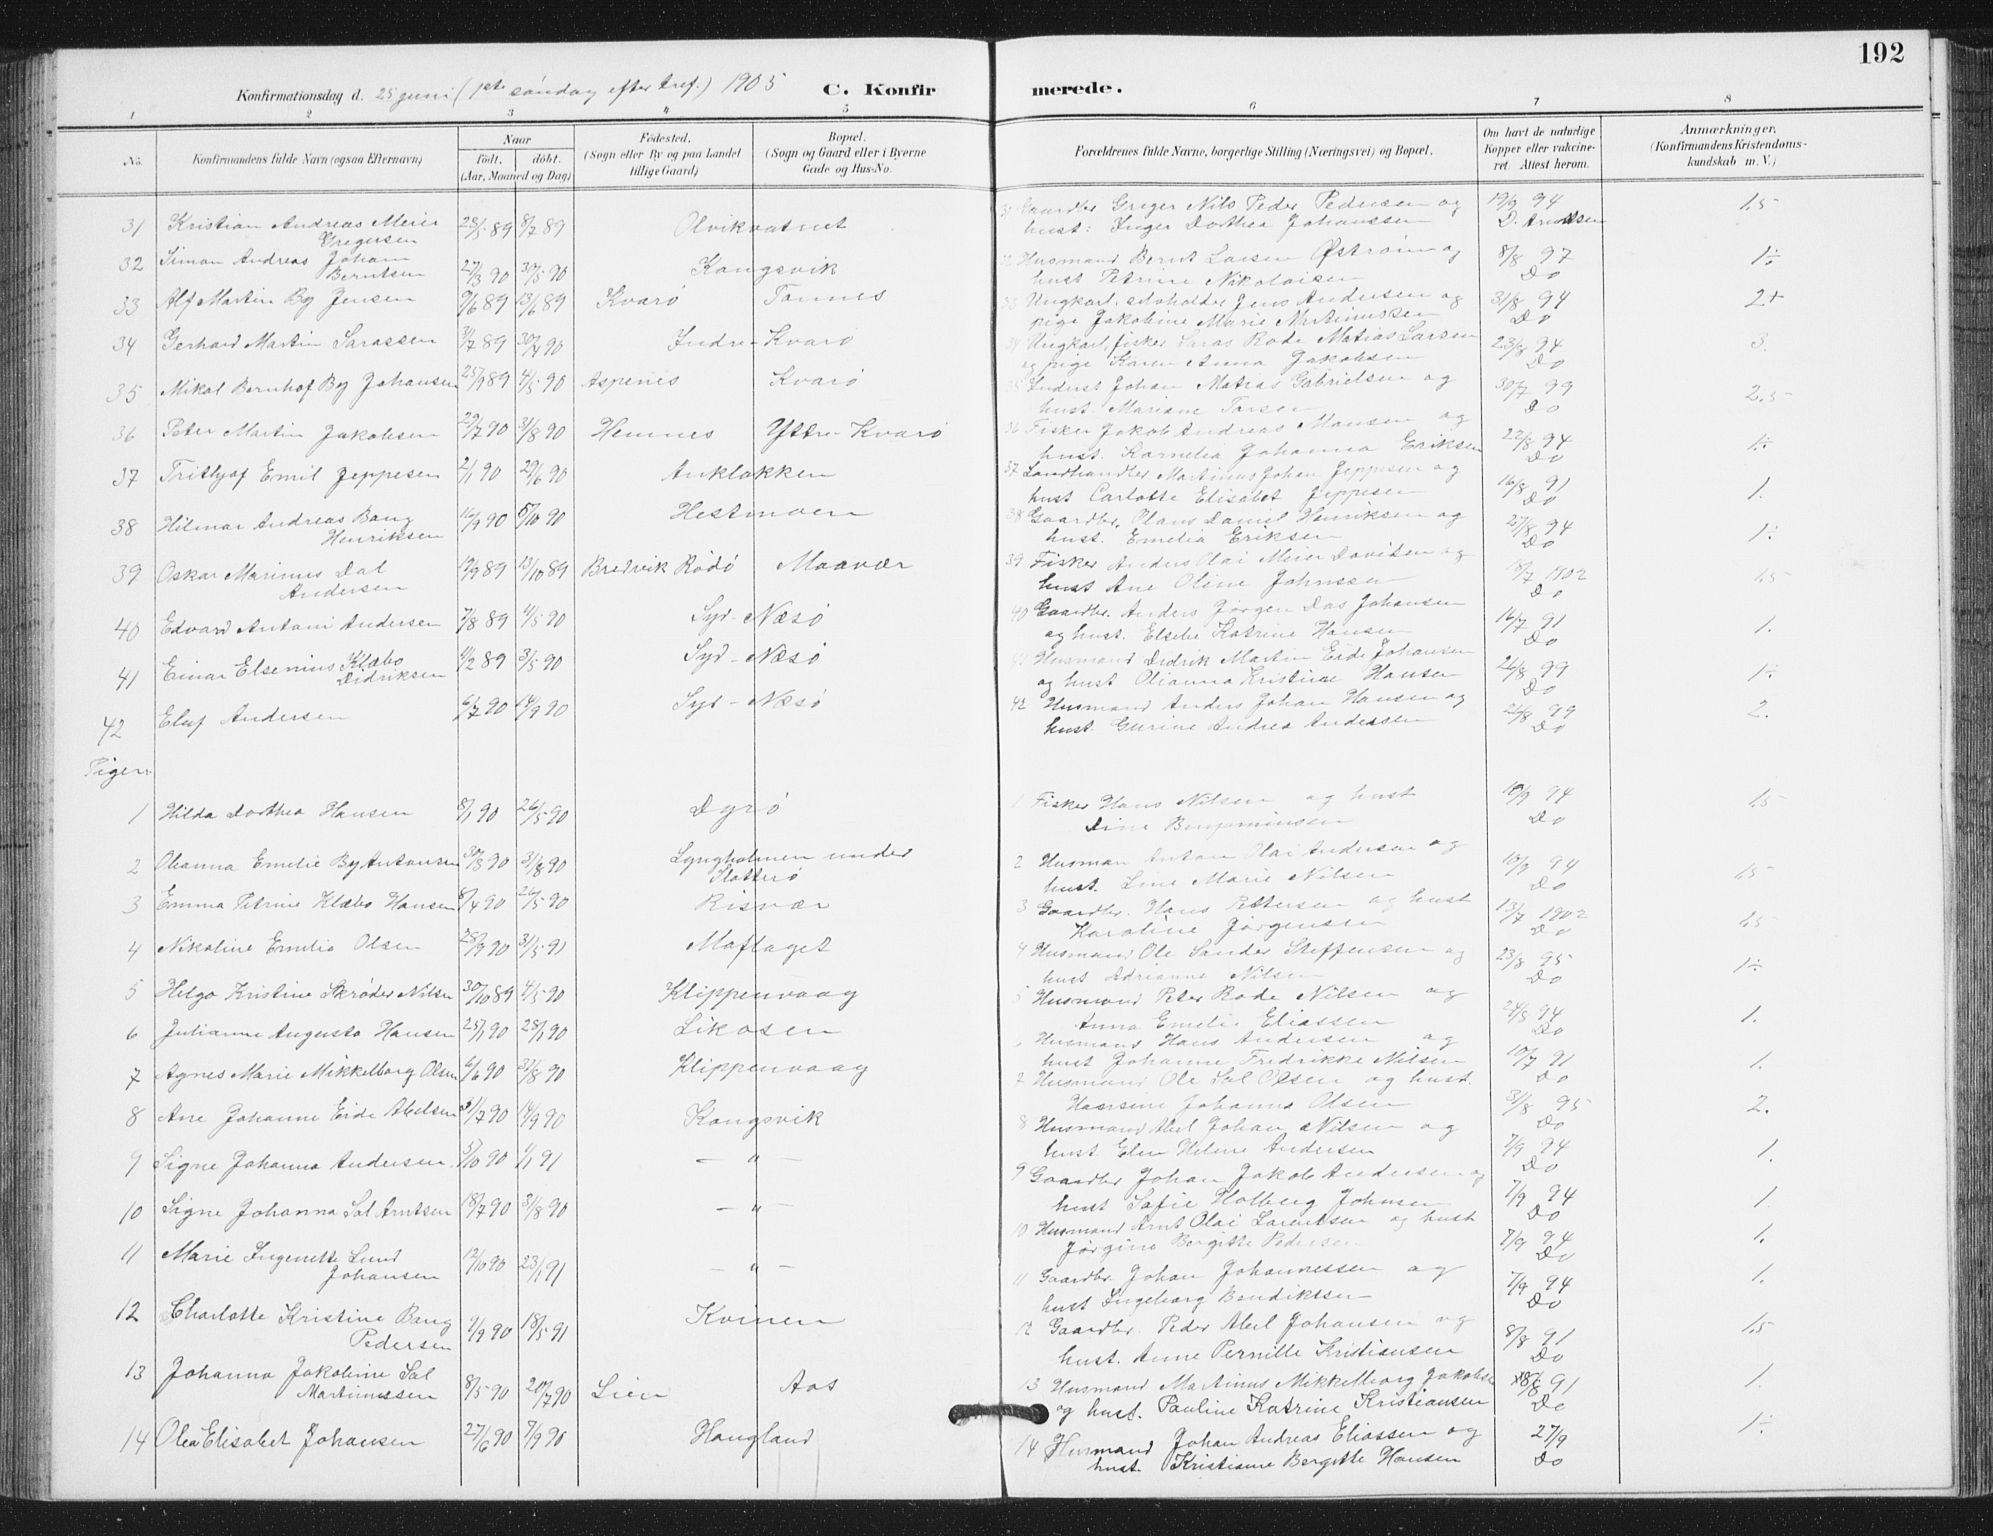 192
Konfirmationsdag d. 25 juni (1ste søndag efter Tref.) 1905 C. Konfir merede.
1 2 3 4 5 6 7 8
No. Konfirmandens fulde Navn (ogsaa Efternavn) Naar født, døbt. (Aar, Maaned og Dag) Fødested. (Sogn eller By og paa Landet tillige Gaard) Bopæl. (Sogn og Gaard eller i Byerne Gade og Hus-No. Forældrenes fulde Navne, borgerlige Stilling (Næringsvei) og Bopæl. Om havt de naturlige Kopper eller vakcineret. Attest herom. Anmærkninger. (Konfirmandens Kristendomskundskab m. V.)
31 Kristian Andreas Meier Gregersen 28/5 89 8/7 89 Olvikvatnet 31 Gaardbr Greger Nils Peder Pedersen og hust: Inger Dorthea Johanssen 19/9 94 D. Arntsen 1.5
32 Simon Andreas Johan Berntsen 27/3 90 30/5 90 Kongsvik Husmand Bernt Larsen Østrøim og hust Petrine Nikolaisen 8/8 97 Do 1÷
33 Alf Martin By Jensen 9/6 89 13/6 89 Kvarø Tonnes 33 Ungkarl, selvholder Jens Andersen og pige Jakobine Marie Martinussen 31/8 94 Do 2+
34 Gerhard Martin Sarassen 31/7 89 30/4 90 Indre-Kvarø Ungkarl, fisker Saras Rode Matias Larsen og pige Karen Anna Jakobsen 23/8 94 Do 3.
35 Mikal Bernhof By Johansen 25/9 89 4/5 90 Aspenes Kvarø 35 Inderst Johan Matias Gabrielsen og hust. Mariane Torsen 30/7 99 Do 2.5
36 Peter Martin Jakobsen 29/7 90 31/8 90 Hemnes Yttre-Kvarø 36 Fisker Jakob Andreas Hansen og hust. Kornelia Johanna Eriksen 22/8 94 Do 1÷
37 Tritjof Emil Jeppesen 2/1 90 29/6 90 Anklakken 37 Landhandler Martinus Johan Jeppesen og hust Carlotte Elisabet Jeppesen 16/8 91 Do 1.
38 Hilmar Andreas Bang Henriksen 16/9 90 5/10 90 Hestmoen 38 Gaardbr. Olaus Daniel Henriksen og hust. Emelia Eriksen 27/8 94 Do 1÷
39 Oskar Marinus Dal Andersen 19/9 89 13/10 89 Bredvik Rødø Maavær 39 Fisker Anders Olai Meier Davidsen og hust Ane Oline Johnssen 18/7 1902 Do 1.5
40 Edvard Antoni Andersen 7/8 89 4/5 90 Syd-Næsø 40 Gaardbr. Anders Jørgen Das Johansen og hust. Elsebe Katrine Hansen 16/7 91 Do 1.
41 Einar Elsenius Klæbo Didriksen 11/2 89 3/5 90 Syd-Næsø 41 Husmand Didrik Martin Eide Johansen og hust Olianna Kristine Hansen 26/8 99 Do 1÷
42 Eluf Andersen 6/7 90 14/9 90 Syd-Næsø 42 Husmand Anders Johan Hansen og hust. Gurine Andrea Andersen 26/8 99 Do 2.
Piger:
1 Hilda Dorthea Hansen 8/1 90 26/5 90 Dyrø 1 Fisker Hans Nilsen og hust Dine Benjaminsen 19/9 94 Do 1.5
2 Olianna Emelie By Antonsen 30/3 90 31/8 90 Lyngholmen under Slotterø 2 Husman Anton Olai Andersen og hust. Line Marie Nilsen 19/9 94 Do 1.5
3 Emma Petrine Klæbo Hansen 8/4 90 26/5 90 Risvær 3 Gaardbr. Hans Pettersen og hust Karoline Jørgensen 13/7 1902 Do 1.5
4 Nikoline Emelia Olsen 28/9 90 31/5 91 Moflaget 4 Husmand Ole Sander Steffensen og hust Adrianne Nilsen 23/8 95 Do 1÷
5 Helga Kristine Skrøder Nilsen 30/10 89 4/5 90 Klippenvaag 5 Husmand Peter Rode Nilsen og Anna Emelie Eliassen 24/8 94 Do 1.
6 Julianne Augusta Hansen 25/1 90 28/1 90 Likosen Husmand Hans Andersen og hust Johanne Fredrikke Nilsen 10/7 91 Do 1.
7 Agnes Marie Mikkelborg Olsen 6/6 90 31/8 90 Klippenvaag 7 Husmand Ole Sal Olsen og hust. Haersine Johanna Olsen 31/8 95 Do 2.
8 Ane Johanne Eide Abelsen 31/7 90 14/9 90 Kongsvik 8 Husmand Abel Johan Nilsen og hust Elen Helene Andersen 7/9 94 Do 1.
9 Signe Johanna Andersen 5/10 90 1/1 91 — " — 9 Gaardbr Johan Jakob Andersen og hust Safie Holberg Johnsen 7/9 94 Do 1.
10 Signe Johanna Sal Arntsen 18/7 90 31/8 90 — " — 10 Husmand Arnt Olai Larentsen og hust Jørgine Bergitte Pedersen 7/9 94 Do 1.
11 Marie Ingenette Lund Johansen 12/10 90 23/1 91 — " — 11 Gaardbr. Johan Johannessen og hust Ingeborg Bendiktsen 7/9 94 Do 1.
12 Charlotte Kristine Bang Pedersen 9/9 90 18/5 91 Kvinen 12 Gaardbr. Peder Abel Johansen og hust. Anne Pernille Kristiansen 8/8 91 Do 1.5
13 Johanna Jakobine Sal Martinussen 8/5 90 20/7 90 Lien Aas 13 Husmand Martinus Mikkelborg Jakobsen og hust. Pauline Katrine Kristiansen 8/8 91 Do 1.
14 Olea Elisabet Johansen 27/6 90 7/9 90 Hangland 14 Husmand Johan Andreas Eliassen og hust. Kristianne Bergitte Hansen 27/9 Do 1÷